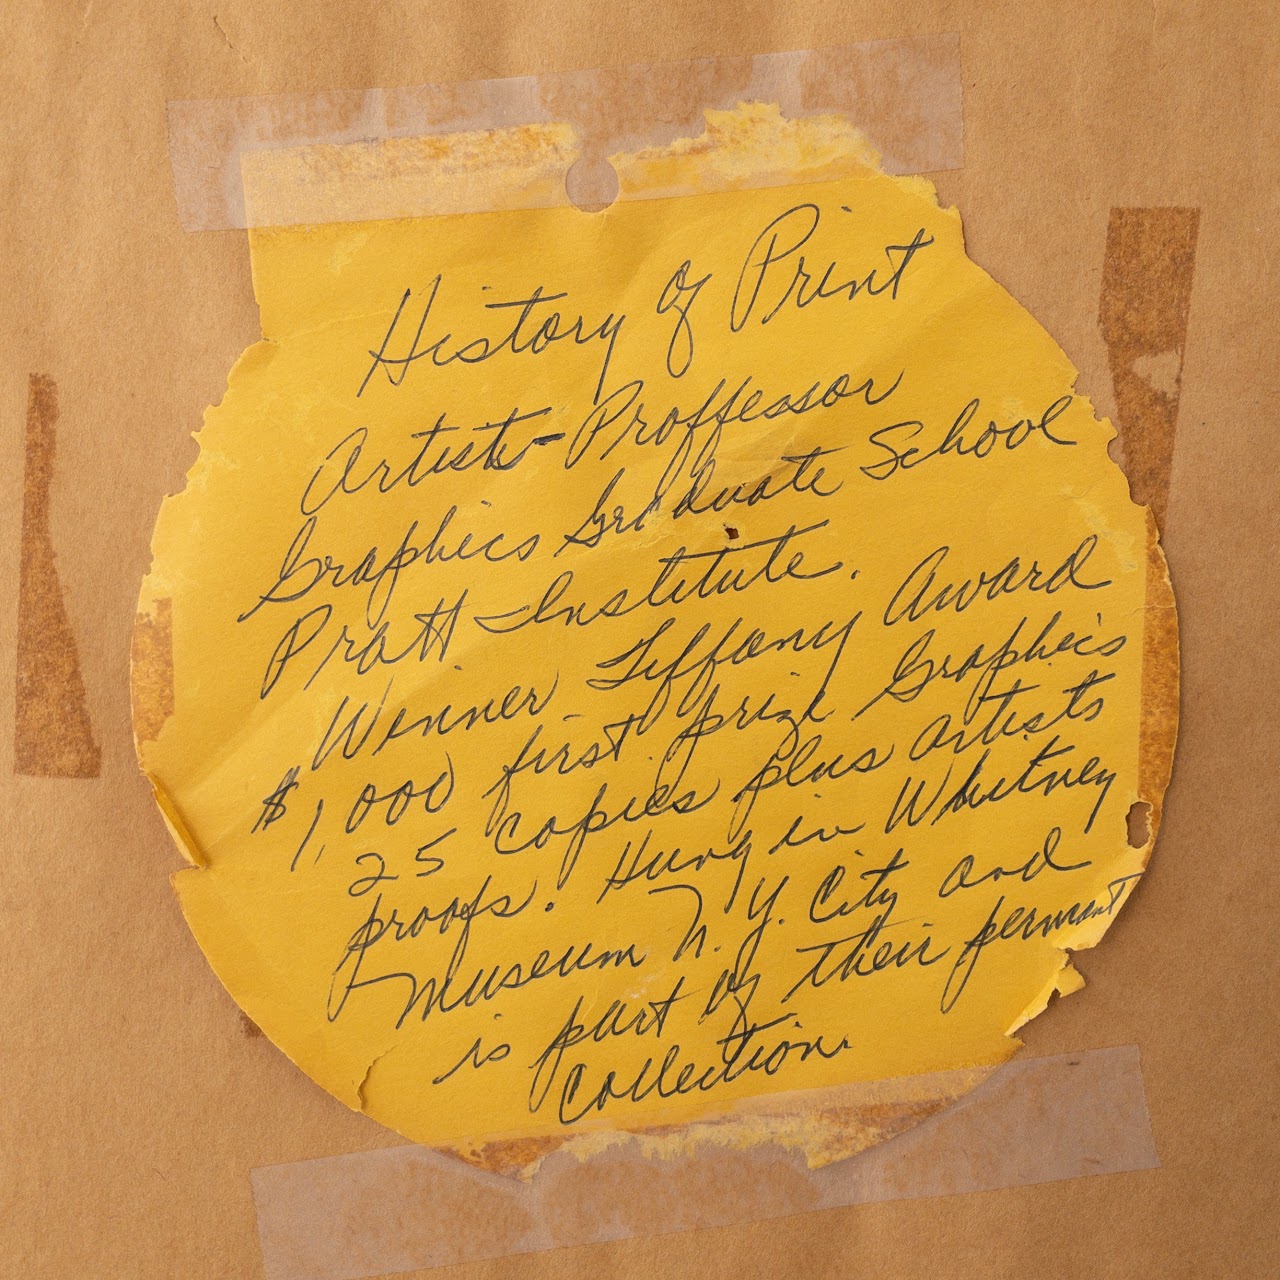 History of Print
Artist-Proffessor
Graphics Graduate School
Pratt Institute.
Winner Tiffany Award
$1,000 first prize Graphics
25 copies plus artists
proofs. Hung in Whitney
Museum N.Y. City and
is part of their permant
Collection.